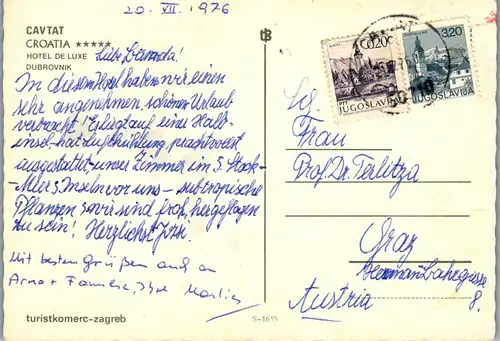 20. VII. 1976
CAVTAT
CROATIA *****
HOTEL DE LUXE
DUBROVNIK
Liebe
In diesem Hotel haben wir einen
sehr angenehmen, schönen Urlaub
verbracht! Er liegt auf einer Halb-
insel, hat Luftkühlung, prachtvoll
ausgestattet - unser Zimmer im 5. Stock -
Meer + Inseln vor uns - subtropische
Pflanzen, wir sind froh, hergeflogen
zu sein! Herzlichst
Mit besten Grüßen auch an
Arno + Familie, Ihre
turistkomerc-zagreb
S-1635
0.20
PTT
JUGOSLAVIJA
3.20
JUGOSLAVIJA
Frau
Prof. Dr. Terlitza
Graz
8.
Austria